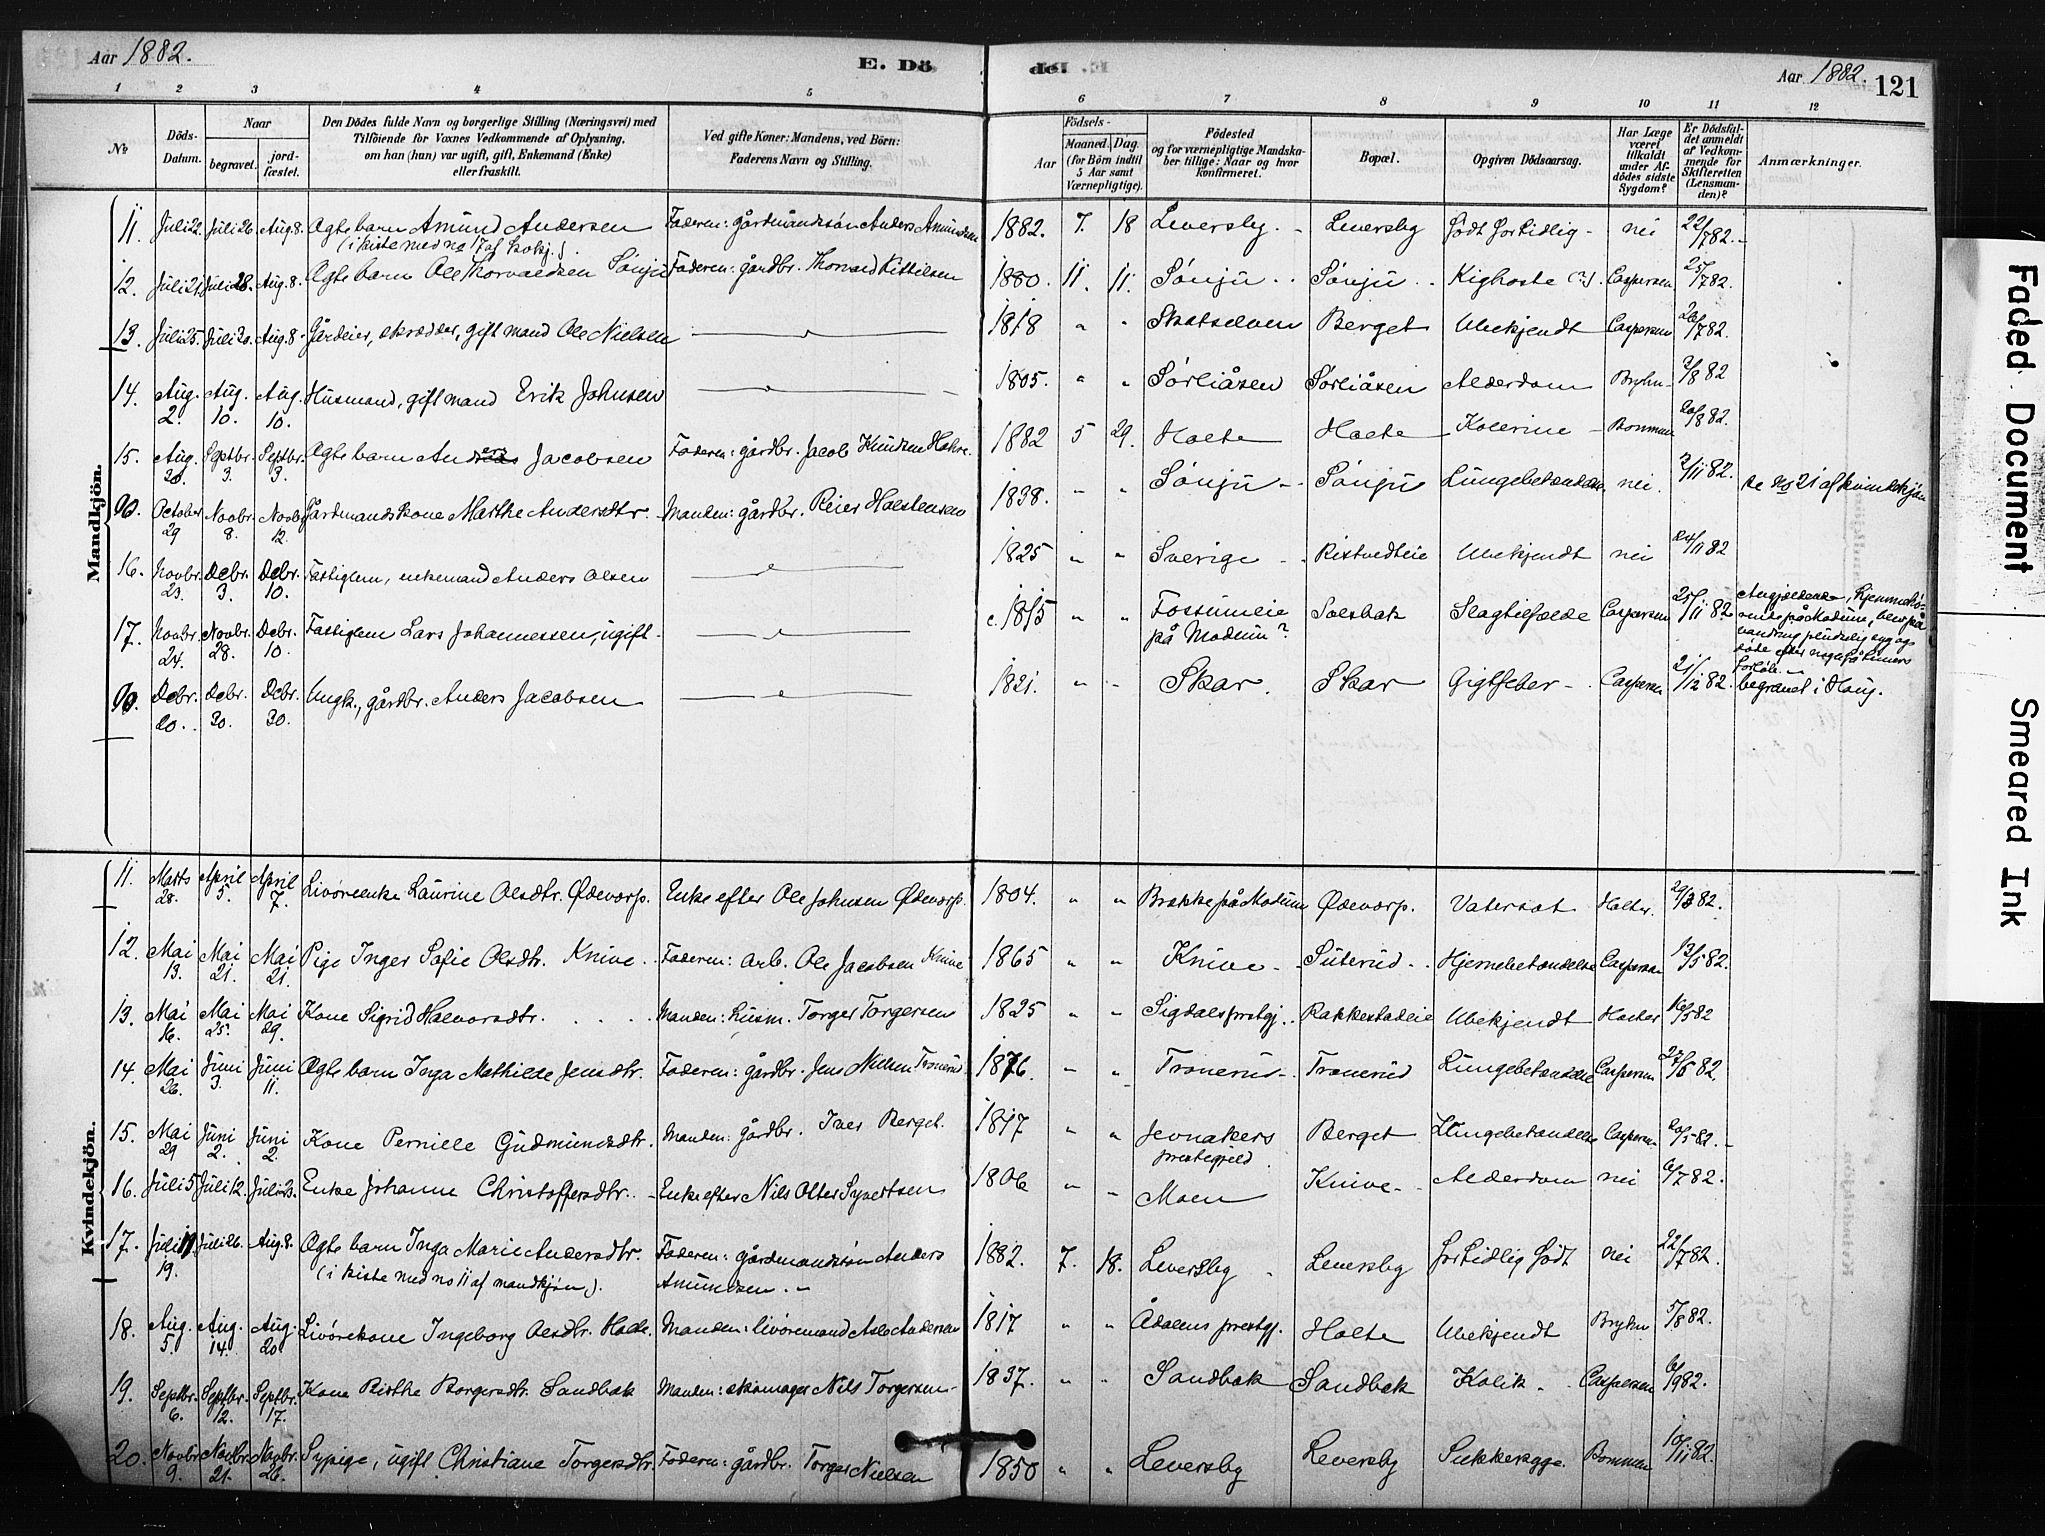 Aar 1882.
E. Dö
de.
Aar 1882. 121
1 2 3 4 5 6 7 8 9 10 11 12
No
Döds-
Datum.
Naar
begravet.
jord-
fæstet.
Den Dödes fulde Navn og borgerlige Stilling (Næringsvei) med
Tilföiende for Voxnes Vedkommende af Oplysning,
om han (hun) var ugift, gift, Enkemand (Enke)
eller fraskilt.
Ved gifte Koner: Mandens, ved Börn:
Faderens Navn og Stilling.
Aar
Födsels-
Maaned. Dag.
(for Börn indtil
5 Aar samt
Værnepligtige).
Födested
og for værnepligtige Mandska-
ber tillige: Naar og hvor
konfirmeret.
Bopæl.
Opgiven Dödsaarsag.
Har Læge
været
tilkaldt
under Af-
dödes sidste
Sygdom?
Er Dödsfal-
det anmeldt
af Vedkom-
mende for
Skifteretten
(Lensman-
den)?
Anmærkninger.
Mandkjön.
11. Juli 22. Juli 26. Aug. 8. Ægte barn Amund Andersen Faderen: gårdmandssön Anders Amundsen 1882. 7. 18 Leversby. Leversby födt for tidlig nei 22/7 82.
(i kiste med no 17 af kvkj.)
12. Juli 21. Juli 28. Aug. 8. Ægte barn Ole Thorvaldsen Sönju Faderen: gårdbr. Thorvard Kittilsen 1880. 11. 11. Sönju Sönju Kighoste (?) Caspersen 25/7 82.
13. Juli 25. Juli 30. Aug. 8. Gårdeier, skrædder, gift mand Ole Nielsen 1818 " " Skotselven Berget Ubekjendt Caspersen 26/7 82.
14. Aug. 2. Aug. 10. Aug. 10. Husmand, gift mand Erik Johnsen 1805. " " Sörliåsen Sörliåsen Alderdom Bryhn 2/8 82
15. Aug. 20. Septbr. 3. Septbr. 3. Ægte barn Jacobsen Faderen: gårdbr. Jacob Knudsen 1882 5 29. Holte Holte Kolerine Bomman 20/8 82.
October 29 Novbr. 8. Novbr. 12. Gårdmandskone Marthe Andersdtr. Manden: gårdbr. Reier Halstensen 1838. " " Sönju Sönju Lungebetændelse nei. 2/11 82. se no 21 af kvindekjön
16. Novbr. 23. Debr. 3. Debr. 10. Fattiglem, enkemand Anders Olsen 1825 " " Sverige Ristvedteie Ubekjendt nei 24/11 82
17. Novbr. 24. Novbr. 28. Debr. 10. Fattiglem Lars Johannessen, ugift c. 1815 " " Fossumeie
på Modum? Solsbak Slagtilfælde Caspersen 25/11 82. Angjældende, hjemmehö-
rende på Modum, blev på
vandring pludselig syg og
döde efter nogle få timers
forlöb.
Debr. 20. Debr. 30. Debr. 30. Ungk., gårdbr. Anders Jacobsen 1821. " " Skar. Skar Gigtfeber Caspersen 21/12 82. begravet i Haug.
Kvindekjön.
11. Marts 28. April 5. April 7. Livöreenke Laurine Olsdtr. Ödevorp. Enke efter Ole Johnsen Ödevorp. 1804. " " Brekke på Modum Ödevorp. Vatersot Holter. 29/3 82.
12. Mai 13. Mai 21. Mai 21. Pige Inger Sofie Olsdtr. Knive Faderen: arb. Ole Jacobsen Knive 1865 " " Knive Süterud Hjernebetændelse Caspersen 13/5 82.
13. Mai 16. Mai 25. Mai 29. Kone Sigrid Halvorsdtr. Manden: husm. Torger Torgersen 1825 " " Sigdals prestgj. Rakkestadeie Ubekjendt Holter 16/5 82
14. Mai 26. Juni 3. Juni 11. Ægte barn Inga Mathilde Jensdtr. Faderen: gårdbr. Jens Nilsen Tronerud 1876. " " Tronerud Tronerud Lungebetændelse Caspersen 27/5 82.
15. Mai 29 Juni 2. Juni 2. Kone Pernille Gudmundsdtr. Manden: gårdbr. Iver Berget. 1817 " " Jevnakers
prestegjeld. Berget Lungebetændelse Caspersen 5 82.
16. Juli 5 Juli 12. Juli 23. Enke Johanne Christoffersdtr. Enke efter Nils Olter Syvertsen 1806 " " Moen Knive Alderdom nei 6/7 82.
17. Juli 19. Juli 26. Aug. 8. Ægte barn Inga Marie Andersdtr. Faderen: gårdmandssön Anders
Amundsen. 1882. 7. 18. Leversby Leversby for tidlig födt nei 22/7 82.
(i kiste med no 11 af mandkjön).
18. Aug. 5. Aug. 14. Aug. 20 Livörekone Ingeborg Olsdtr. Holte. Manden: livöremand Asle Andersen 1817 " " Ådalens prestgj. Holte Ubekjendt Bryhn 5/8 82.
19. Septbr. 6. Septbr. 12. Septbr. 17. Kone Birthe Borgersdtr. Sandbak Manden: skomager Nils Torgersen 1837. " " Sandbak Sandbak Kolik. Caspersen 6/9 82.
20. Novbr. 9. Novbr. 21. Novbr. 26. Sypige, ugift Christiane Torgersdtr. Faderen: gårdbr. Torger Nielsen 1850 " " Leversby Leversby Sukkersyge. Bomman 10/11 82.
Faded Document
Smeared Ink